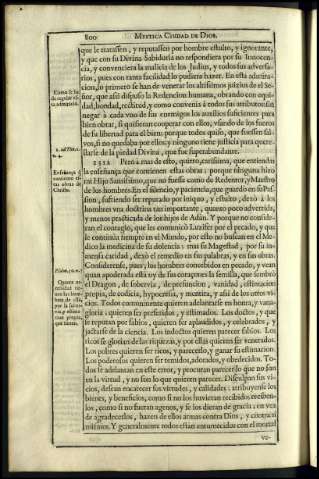 800 MYSTICA CIUDAD DE DIOS.
que le tratassen, y reputassen por hombre estulto, y ignorante,
y que con su Divina Sabiduria no respondiera por su Inocencia,
y convenciera la malicia de los Judios, y todos sus adversarios,
pues con tanta facilidad lo pudiera hazer. En esta admiracion,
lo primero se han de venerar los altissimos juizios de el Señor,
que assi dispuso la Redencion humana, obrando con equidad,
bondad, rectitud, y como convenia à todos sus atributos: sin
negar à cada vno de sus enemigos los auxilios suficientes para
bien obrar, si quisieran cooperar con ellos, vsando de los fueros
de su libertad para el bien: porque todos quiso, que fuessen salvos,
si no quedaba por ellos; y ninguno tiene justicia para querellarse
de la piedad Divina, que fue superabundante.
1312 Pero à mas de esto, quiero, carissima, que entiendas
la enseñança que contienen estas obras: porque ninguna hizo
mi Hijo Santissimo, que no fuesse como de Redentor, y Maestro
de los hombres. En el silencio, y paciencia, que guardò en su Pasion,
sufriendo ser reputado por iniquo, y estulto, dexò à los
hombres vna doctrina tan importante, quanto poco advertida,
y menos practicada de los hijos de Adàn. Y porque no consideran
el contagio, que les comunicò Lucifer por el pecado, y que
le continùa siempre en el Mundo, por esto no buscan en el Medico
la medicina de su dolencia: mas su Magestad, por su inmensa
caridad, dexò el remedio en sus palabras, y en sus obras.
Considerense, pues, los hombres concebidos en pecado, y vean
quan apoderada està oy de sus coraçones la semilla, que sembrò
el Dragon, de sobervia, de presuncion, vanidad, estimacion
propia, de codicia, hypocresia, y mentira, y assi de los otros vicios.
Todos comunmente quieren adelantarse en honra, y vanagloria:
quieren ser preferidos, y estimados. Los doctos, y que
se reputan por sabios, quieren ser aplaudidos, y celebrados, y
jactarse de la ciencia. Los indoctos quieren parecer sabios. Los
ricos se glorian de las riquezas, y por ellas quieren ser venerados.
Los pobres quieren ser ricos, y parecerlo, y ganar su estimacion.
Los poderosos quieren ser temidos, adorados, y obedecidos. Todos
se adelantan en este error, y procuran parecer lo que no son
en la virtud, y no son lo que quieren parecer. Disculpan sus vicios,
desean encarecer sus virtudes, y calidades: atribuyense los
bienes, y beneficios, como si no los huvieran recibido: recibenlos,
como si no fueran agenos, y se los dieran de gracia: en vez
de agradecerlos, hazen de ellos armas contra Dios, y contra sí
mismos. Y generalmente todos estàn entumecidos con el mortal
ve-